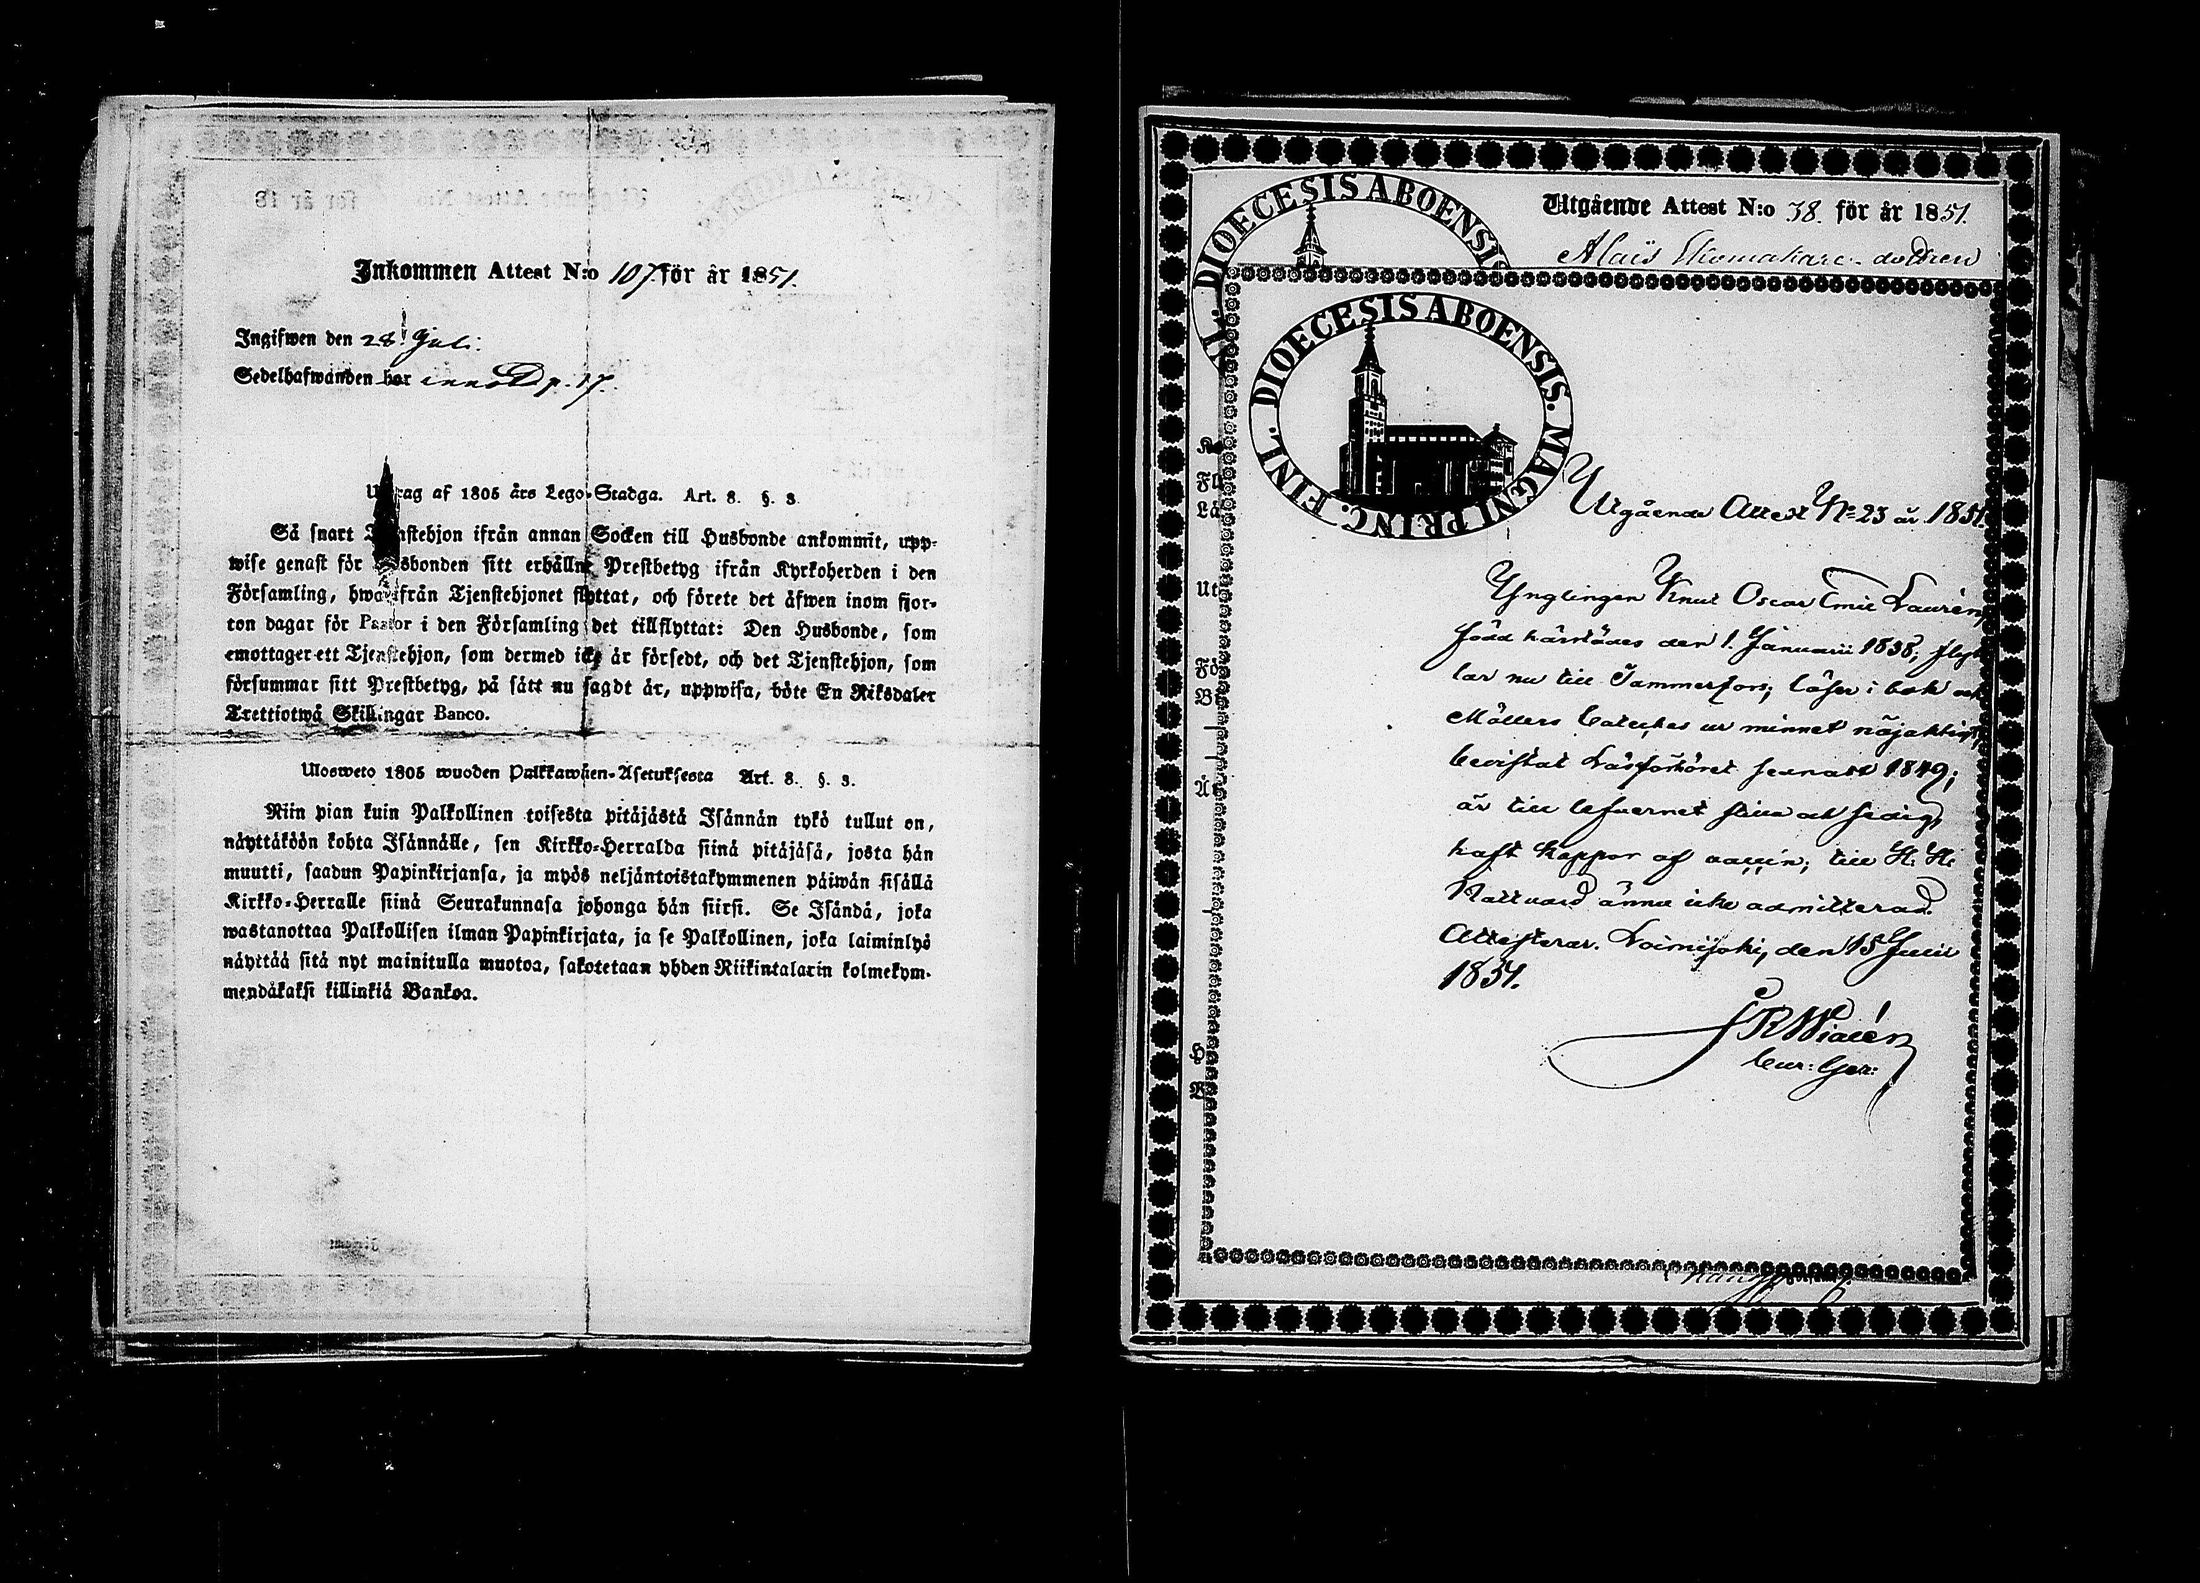 Inkommen Attest N:o 107. för år 1851.
Ingifwen den 28 Juli.
Sedelhafwanden har p. 17.
Utdrag af 1805 års Lego-Stadga. Art. 8. §. 3.
Så snart Tjenstehjon ifrån annan Socken till Husbonde ankommit, upp-
wise genast för Husbonden sitt erhållne Prestbetyg ifrån Kyrkoherden i den
Församling, hwarifrån Tjenstehjonet flyttat, och förete det äfwen inom fjor-
ton dagar för Pastor i den Församling det tillflyttat: Den Husbonde, som
emottager ett Tjenstehjon, som dermed icke är försedt, och det Tjenstehjon, som
försummar sitt Prestbetyg, på sätt nu sagdt är, uppwisa, böte En Riksdaler
Trettiotwå Skillingar Banco.
Ulosweto 1805 wuoden Palkkawäen-Asetuksesta Art. 8. §. 3.
Niin pian kuin Palkollinen toisesta pitäjästä Isännän tykö tullut on,
näyttäköön kohta Isännälle, sen Kirkko-Herralda siinä pitäjäsä, josta hän
muutti, saadun Papinkirjansa, ja myös neljäntoistakymmenen päiwän sisällä
Kirkko-Herralle siinä Seurakunnasa johonga hän siirsi. Se Isändä, joka
wastanottaa Palkollisen ilman Papinkirjata, ja se Palkollinen, joka laiminlyö
näyttää sitä nyt mainitulla muotoa, sakotetaan yhden Riikintalarin kolmekym-
mendäkaksi killinkiä Bankoa.
Utgående Attest N:o 38. för år 1851.
Alais Skomakare-dottren
DIOECESIS ABOENSIS
DIOECESIS ABOENSIS. MAGNI PRINC. FINL.
Utgående Attest No 23 år 1851.
Ynglingen Knut Oscar Emil Laurén,
född härstädes den 1. Januarii 1838, flyt
tar nu till Tammerfors; läser i bok och
Möllers Cateches ur minnet nöjaktigt,
bevistat Läsförhöret sednast 1849;
är till lefvernet stilla och sedig,
haft koppor af vaccin; till H. H.
Nattvard ännu icke admitterad.
Attesterar. Loimijoki, den 15 Juli
1851.
F R Widén
Cur: Ger: